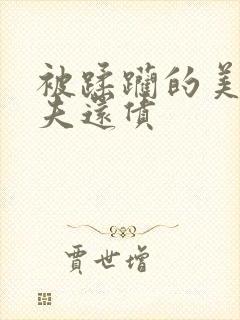 被蹂躪的美
夫還債
賈世增